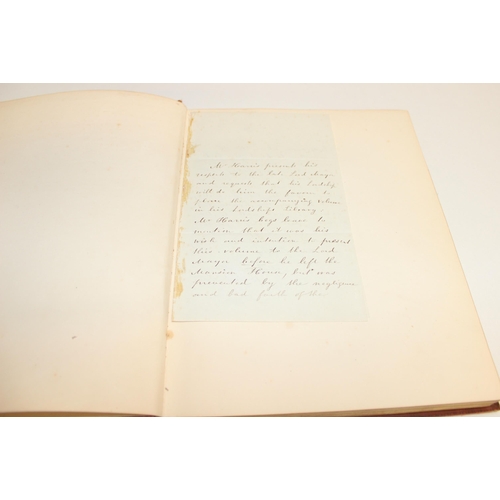 Mr Harris presents his
respects to the late Lord Mayor
and requests that his Lordship
will do him the favor to
place the accompanying volume
in his Lordships library.
Mr Harris begs leave to
mention that it was his
wish and intention to present
this volume to the Lord
Mayor before he left the
Mansion House, but was
prevented by the negligence
and bad faith of the